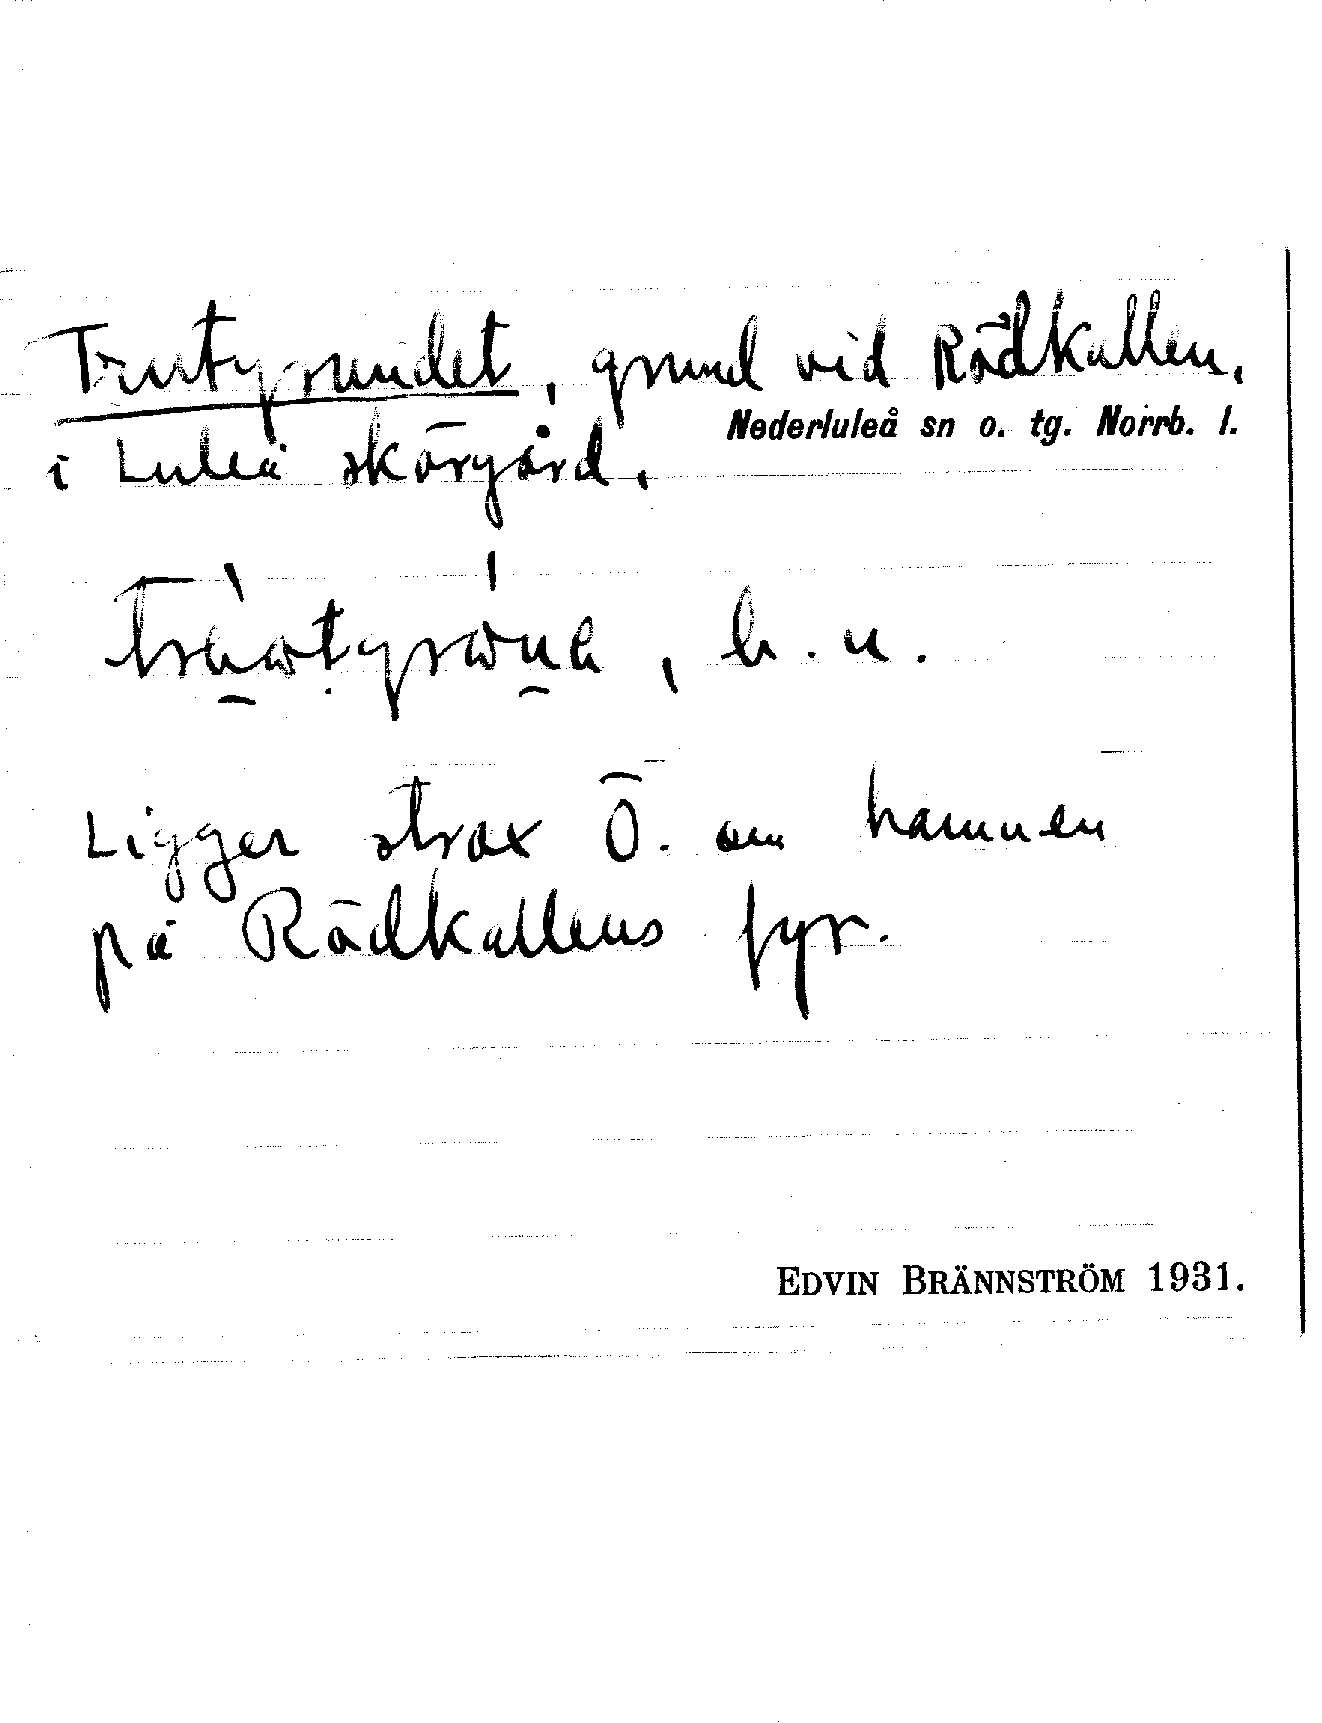 Trutgrundet, grund vid Rödkallen,
Nederluleå sn o. tg. Norrb. l.
i Luleå skärgård.
b. n.
Ligger strax Ö. om hamnen
på Rödkallens fyr.
EDVIN BRÄNNSTRÖM 1931.